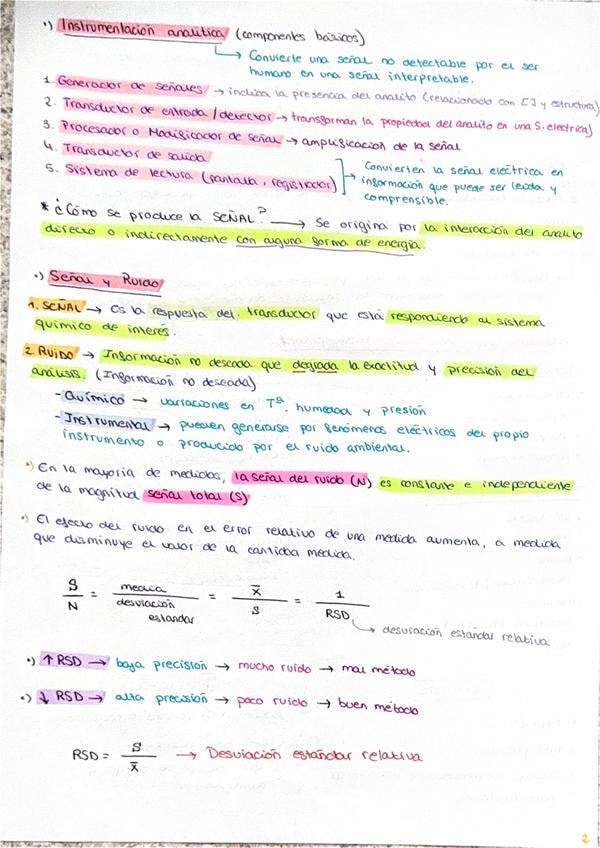 •) Instrumentación analítica (componentes básicos)
→ Convierte una señal no detectable por el ser
humano en una señal interpretable.
1. Generador de señales → indica la presencia del analito (relacionado con [ ] y estructura)
2. Transductor de entrada / detector → transforman la propiedad del analito en una S. eléctrica)
3. Procesador o Modificador de señal → amplificación de la señal
4. Transductor de salida
5. Sistema de lectura (pantalla, registrador)
→ Convierten la señal eléctrica en
información que puede ser leída y
comprensible.
* ¿Cómo se produce la SEÑAL? → Se origina por la interacción del analito
directo o indirectamente con alguna forma de energía.
•) Señal y Ruido
1. SEÑAL → Es la respuesta del transductor que está respondiendo al sistema
químico de interés.
2. RUIDO → Información no deseada que degrada la exactitud y precisión del
análisis. (Información no deseada)
- Químico → variaciones en Tª, humedad y presión
- Instrumental → pueden generarse por fenómenos eléctricos del propio
instrumento o producido por el ruido ambiental.
•) En la mayoría de medidas, la señal del ruido (N) es constante e independiente
de la magnitud señal total (S)
•) El efecto del ruido en el error relativo de una medida aumenta, a medida
que disminuye el valor de la cantidad medida.
S/N = media/desviación estandar = x̄/s = 1/RSD
→ desviación estándar relativa
•) ↑ RSD → baja precisión → mucho ruido → mal método
•) ↓ RSD → alta precisión → poco ruido → buen método
RSD = S/x̄ → Desviación estándar relativa
2